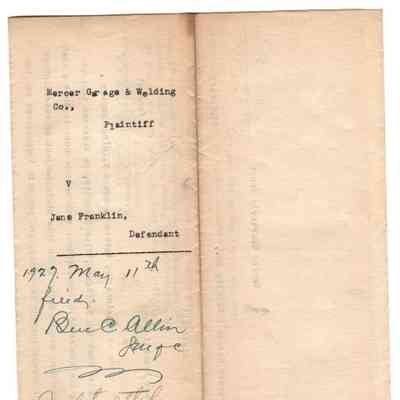 Mercer Garage & Welding
Co.,
Plaintiff
V
Jane Franklin,
Defendant
1927. May 11th
filed.
Ben C Allin